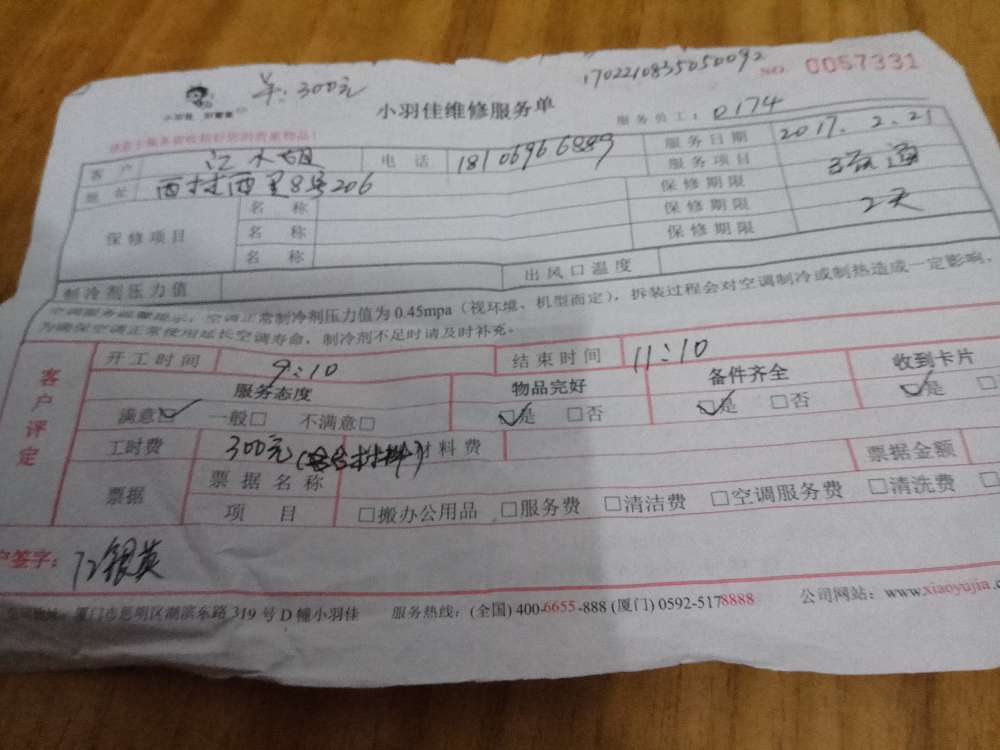 单:300元
170221083505009​2
NO. 0057331
小羽佳维修服务单
服务员工: 0174
客户
电话 18106966889
服务日期 2017.2.21
地址 西村西里8号206
服务项目
保修项目
名称
保修期限 2天
名称
保修期限
名称
保修期限
制冷剂压力值
出风口温度
空调服务温馨提示,空调正常制冷剂压力值为0.45mpa(视环境、机型而定),拆装过程会对空调制冷或制热造成一定影响,
为确保空调正常使用延长空调寿命,制冷剂不足时请及时补充。
客户评定
开工时间 9:10
结束时间 11:10
服务态度 物品完好 备件齐全 收到卡片
满意☑ 一般□ 不满意□ ☑是 □否 ☑是 □否 ☑是
工时费 300元 材料费
票据金额
票据
票据名称
项目 □搬办公用品 □服务费 □清洁费 □空调服务费 □清洗费
户签字: 江银英
厦门市思明区湖滨东路319号D幢小羽佳 服务热线:(全国)400-6655-888 (厦门)0592-5178888 公司网站:www.xiaoyujia.c